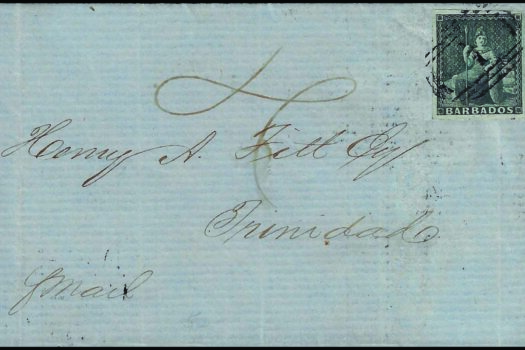 BARBADOS
6
Henry A. Fitt Esq
Trinidad
pr mail